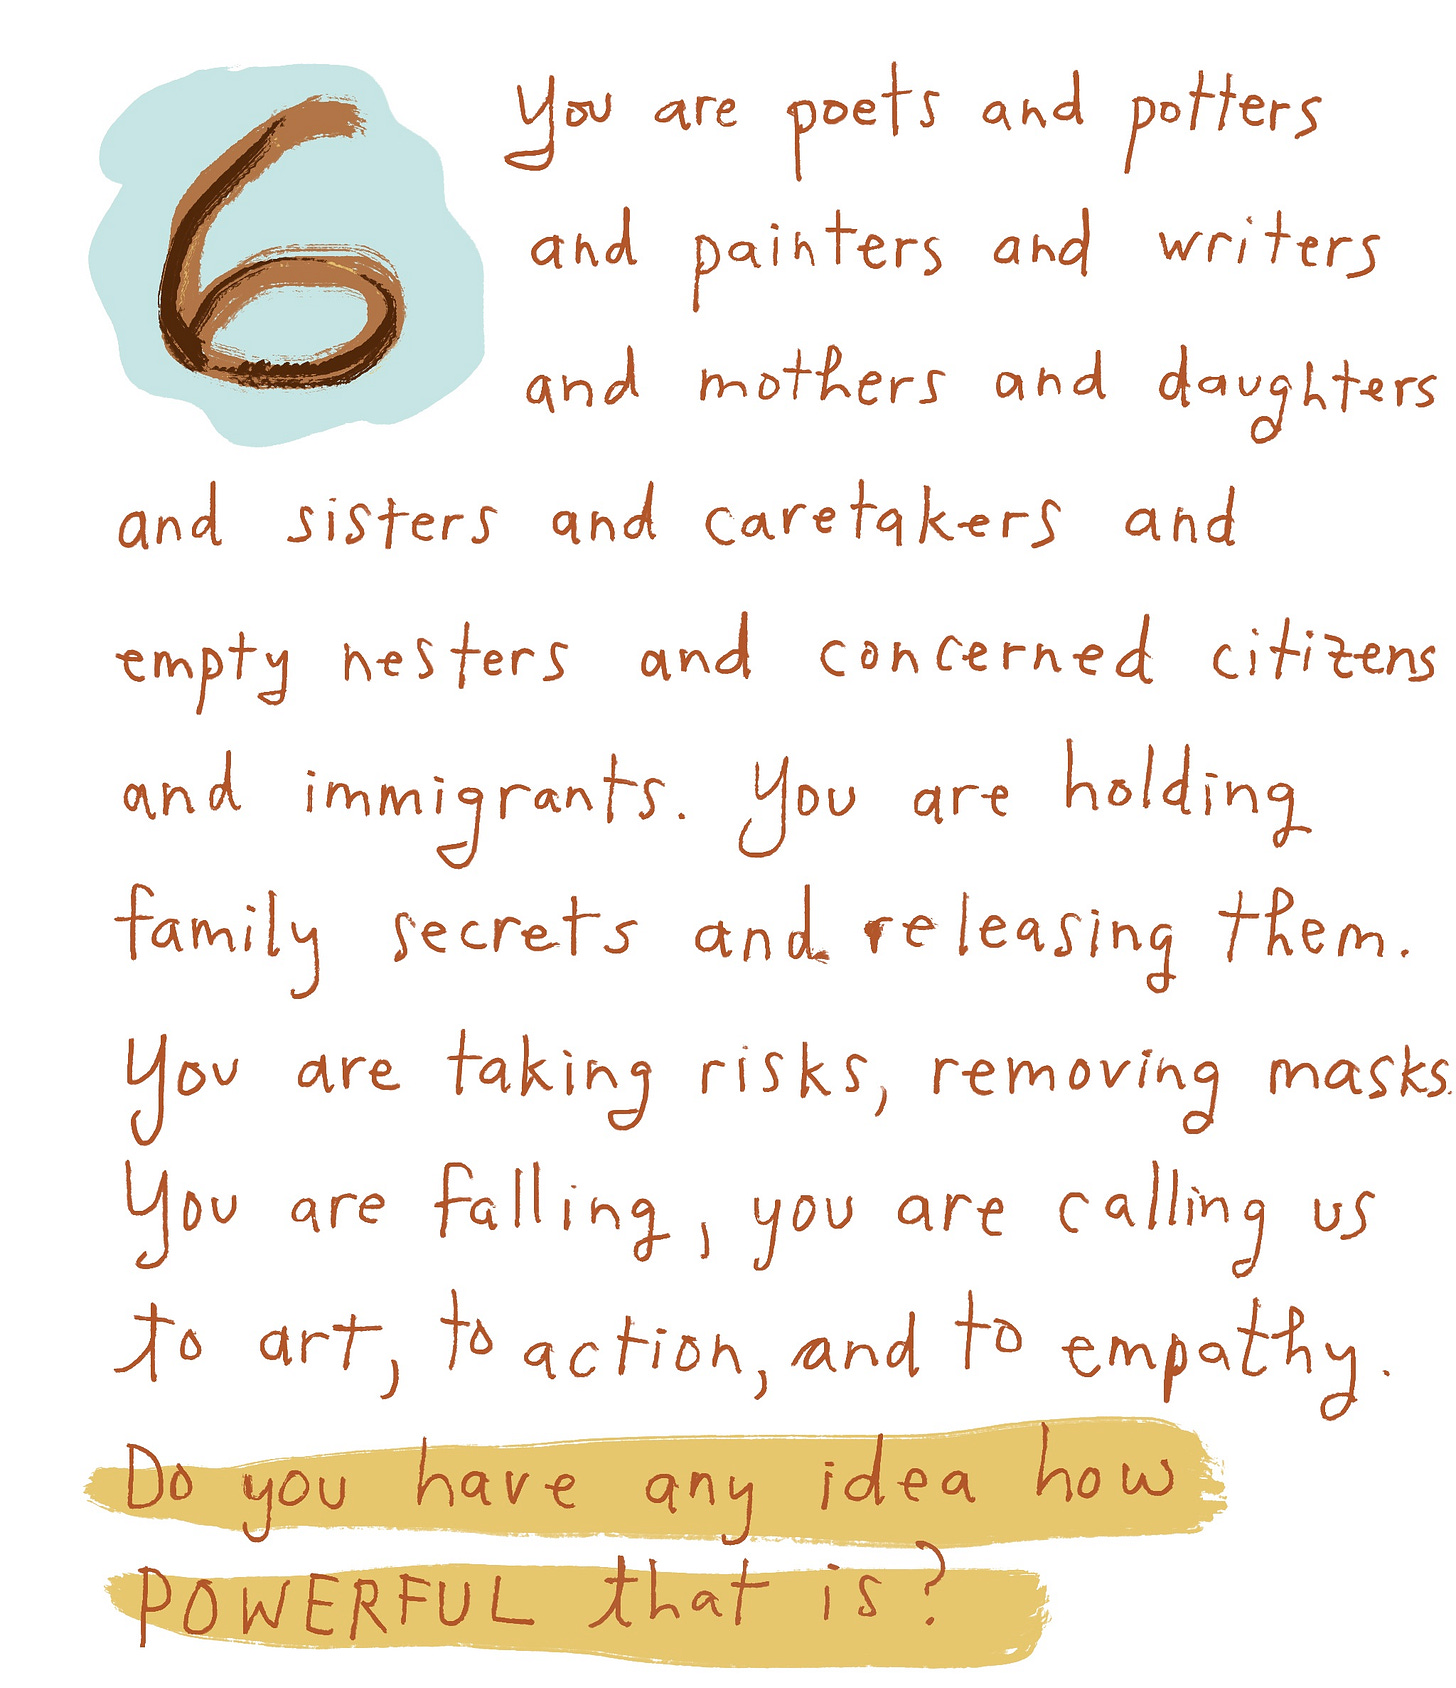 6
You are poets and potters
and painters and writers
and mothers and daughters
and sisters and caretakers and
empty nesters and concerned citizens
and immigrants. You are holding
family secrets and releasing them.
You are taking risks, removing masks.
You are falling, you are calling us
to art, to action, and to empathy.
Do you have any idea how
POWERFUL that is?